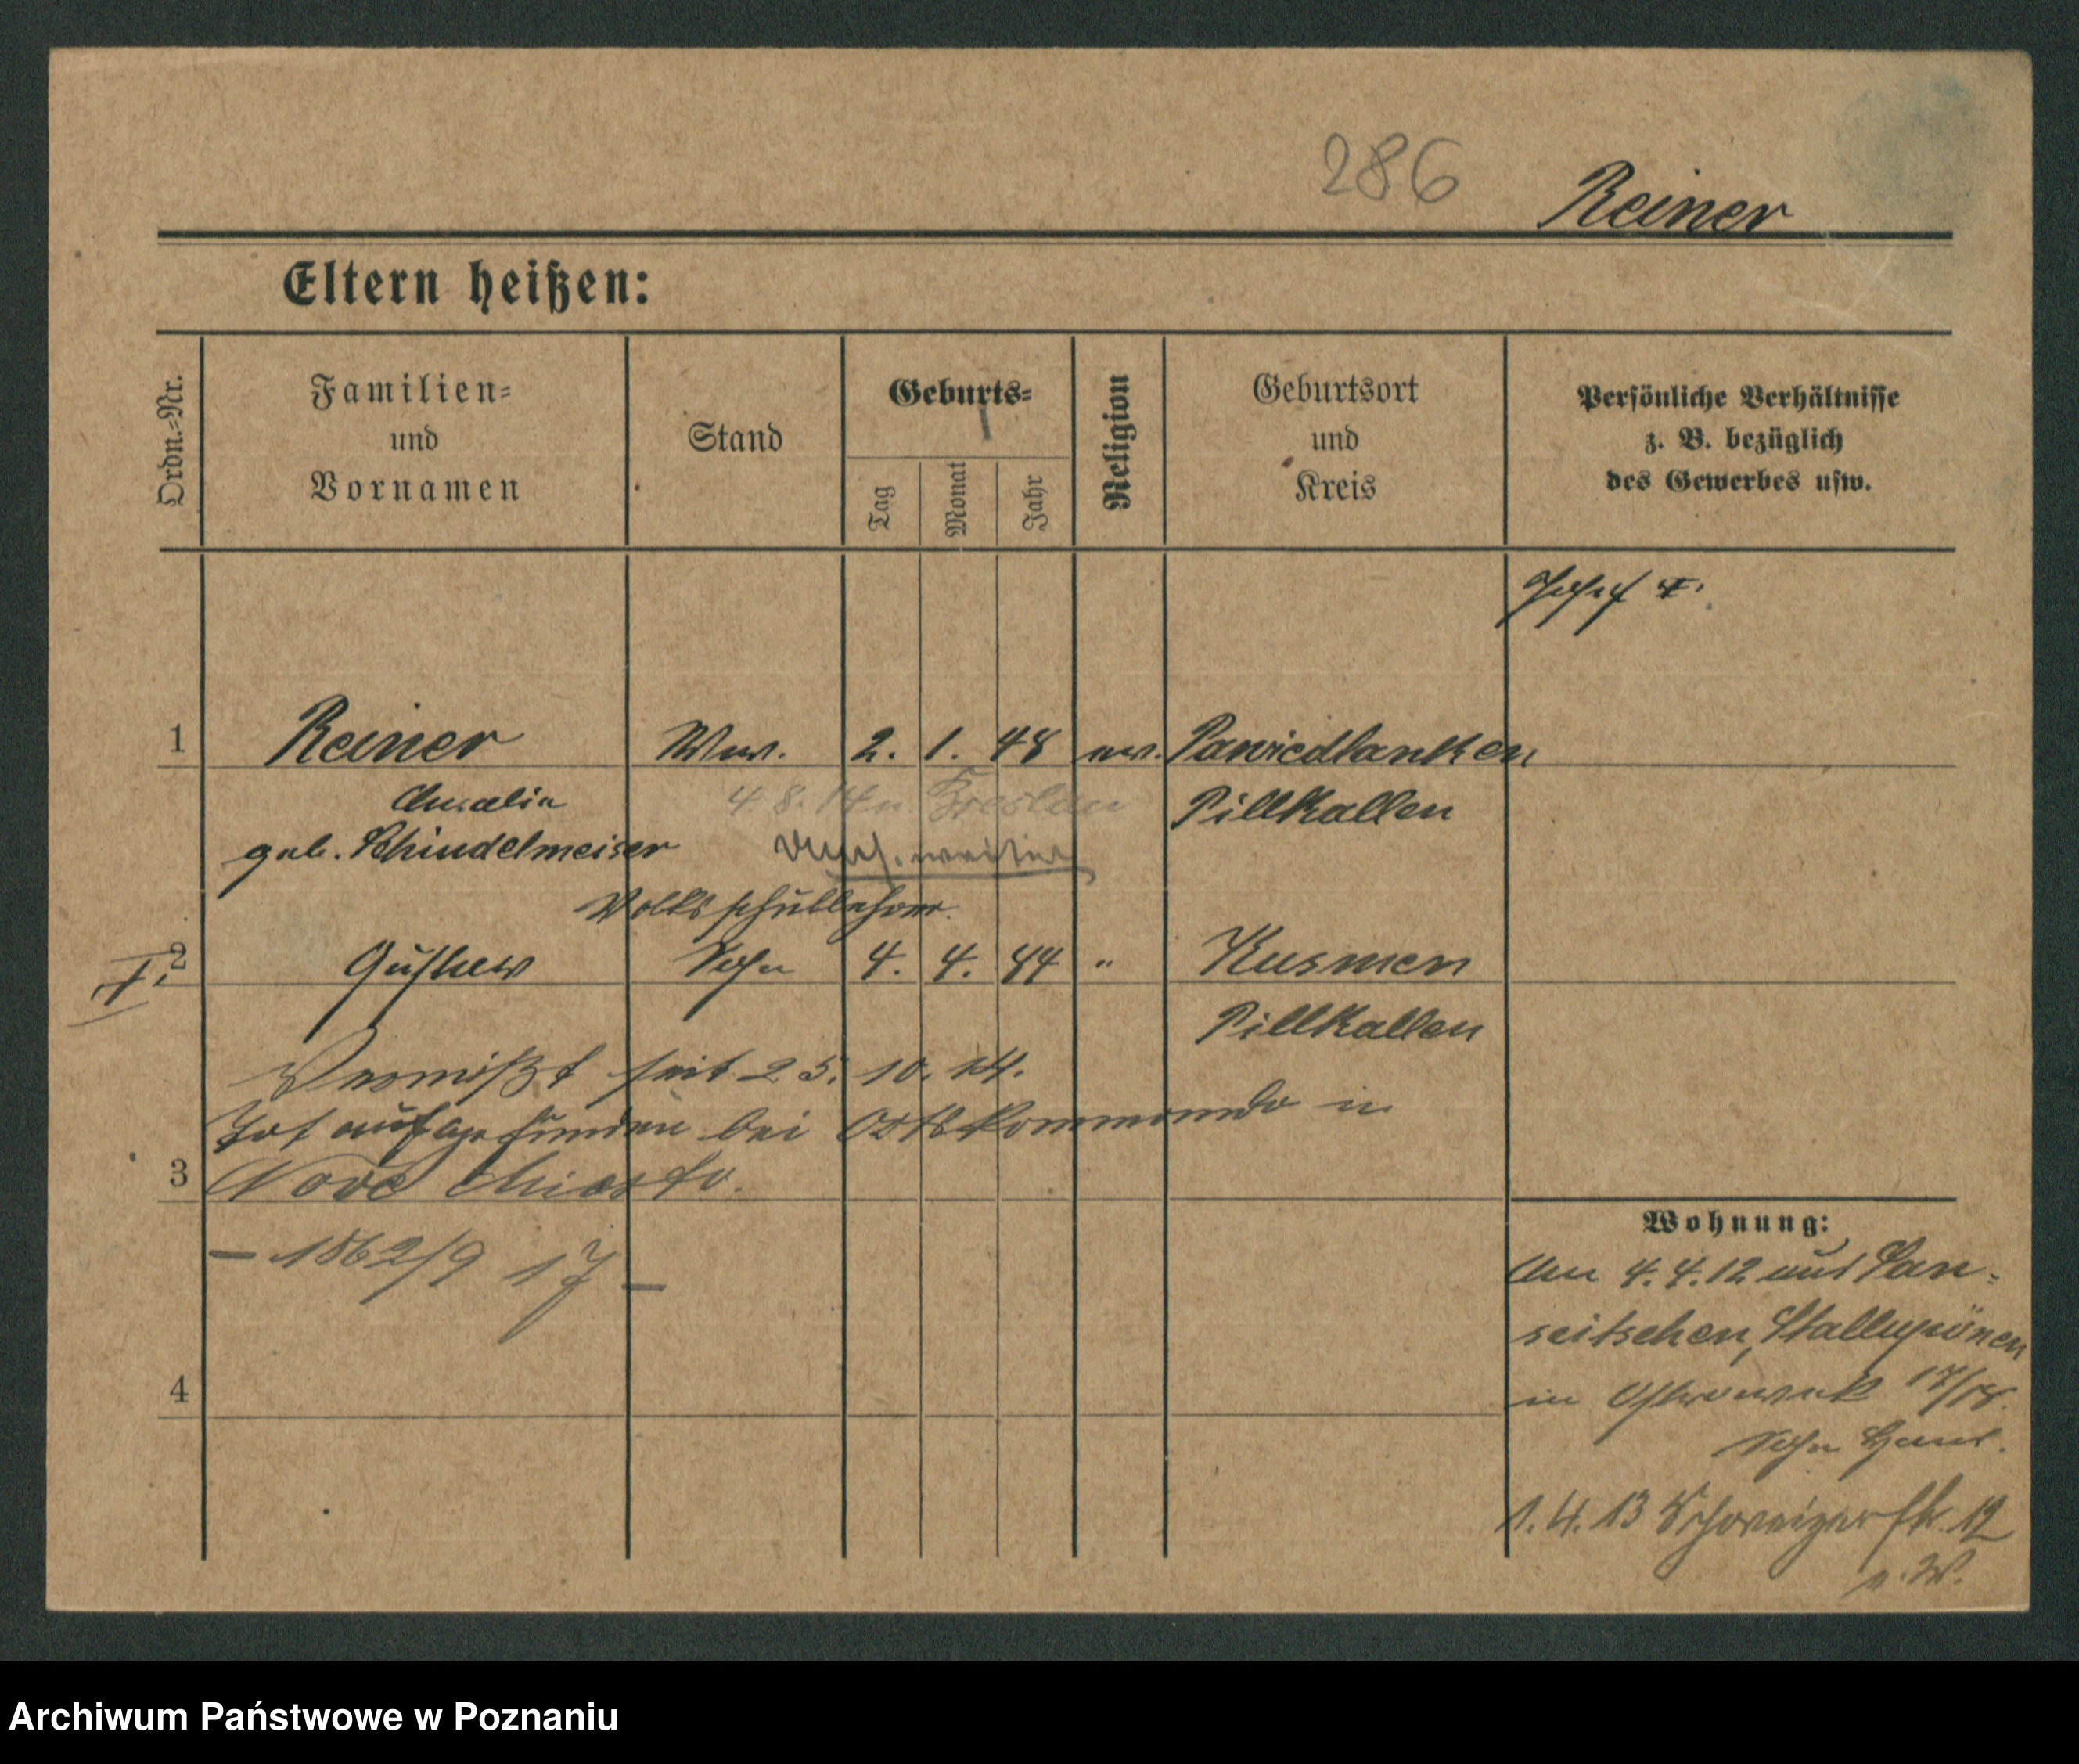 286 Reiner
Eltern heißen:
Ordn.-Nr.
Familien-
und
Vornamen
Stand
Geburts-
Tag
Monat
Jahr
Religion
Geburtsort
und
Kreis
Persönliche Verhältnisse
z. B. bezüglich
des Gewerbes usw.
1 Reiner Ww. 2. 1. 48 ev. Pawiedlauken
Amalie 4 8. 14 n. Breslau Pillkallen
geb. Schindelmeiser
Volksschullehrer.
2 Gustav Sohn 4. 4. 84 " Kusmen
Pillkallen
Vermißt seit 25. 10. 14.
Tot aufgefunden bei Ortskommando in
3 Nove Miasto.
— 1862/9 17 —
4
Wohnung:
Am 4.4.12 aus Pan-
seitschen, Stallupönen
in 17/18.
Sohn Haus.
1.4.13 Schweizerstr. 12
n. W.
Archiwum Państwowe w Poznaniu